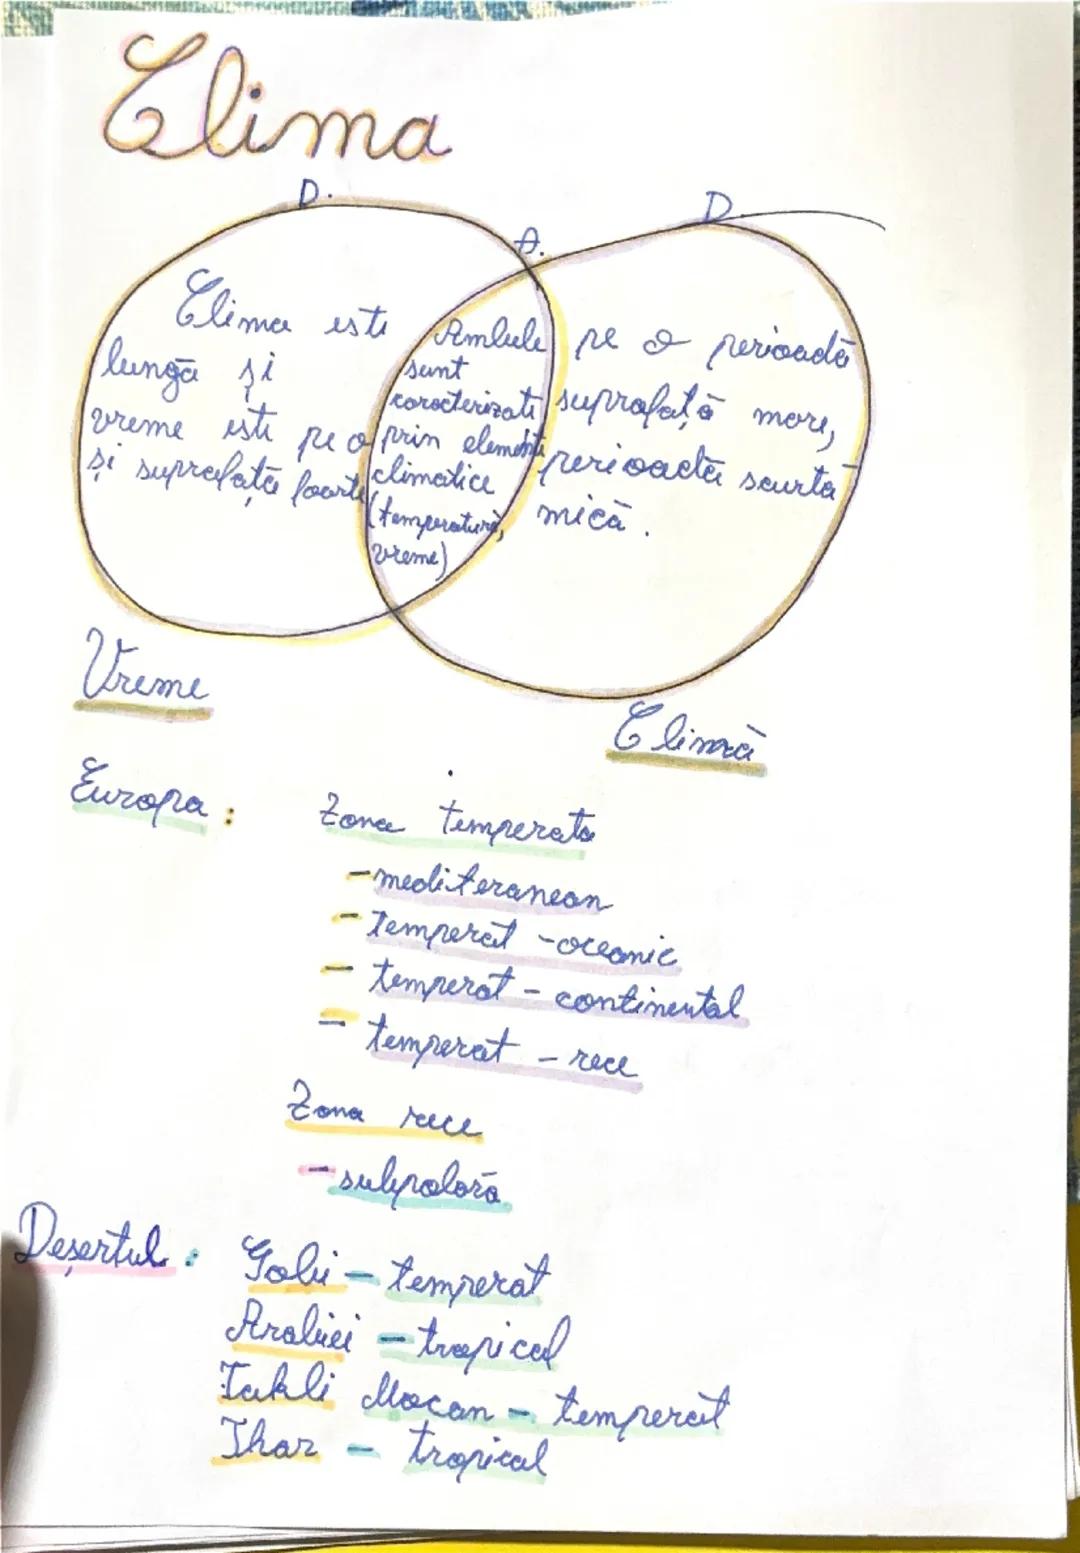 Clima
D.
A.
D
Clima este
lungă și
vreme este pe o
și suprafață foarte
Ambele
sunt
caracterizate
prin elemente
climatice
(temperatură,
vreme)
pe o perioadă
suprafață mare,
perioadă scurtă
mică.
Vreme
Climă
Europa:
Zona temperata
- mediteranean
- Temperat - oceanic
- temperat - continental
- temperat - rece
Zona rece
- subpolară
Deșertul:
Gobi - temperat
Arabiei - tropical
Takli Macan - temperat
Thar - tropical